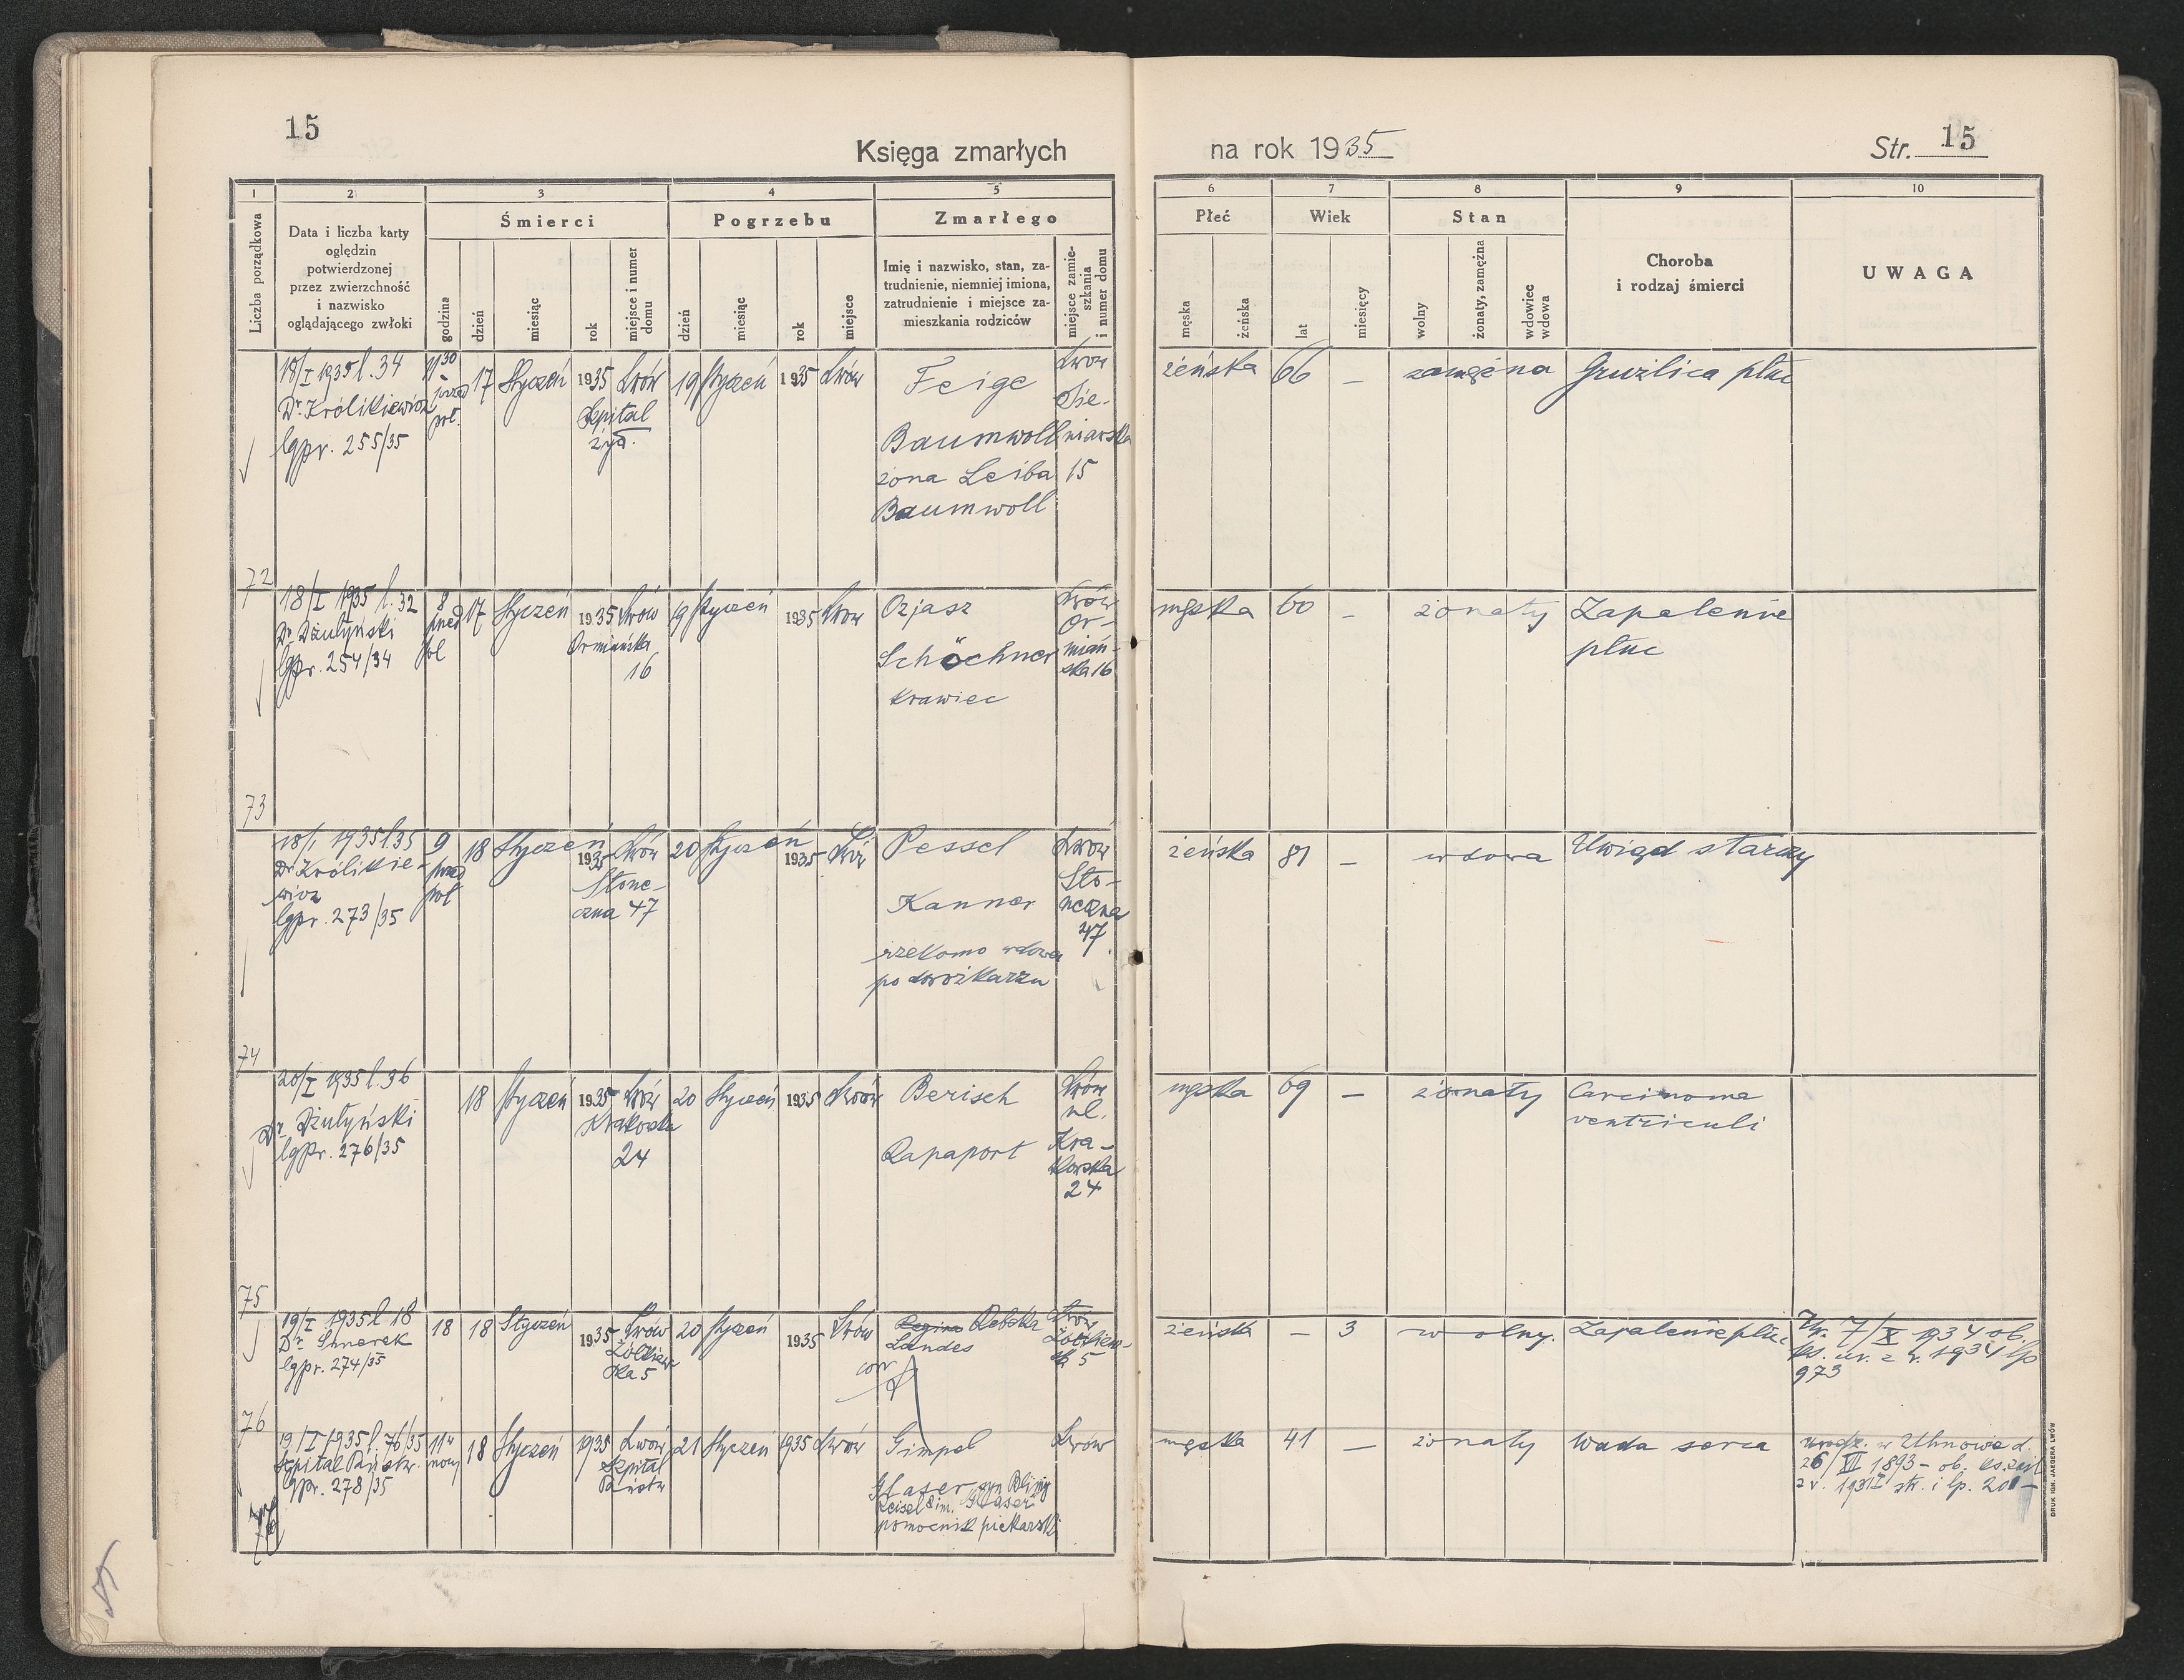 15
Księga zmarłych
na rok 1935
Str. 15
1 2 3 4 5 6 7 8 9 10
Liczba porządkowa
Data i liczba karty
oględzin
potwierdzonej
przez zwierzchność
i nazwisko
oglądającego zwłoki
Śmierci
godzina
dzień
miesiąc
rok
miejsce i numer
domu
Pogrzebu
dzień
miesiąc
rok
miejsce
Zmarłego
Imię i nazwisko, stan, za-
trudnienie, niemniej imiona,
zatrudnienie i miejsce za-
mieszkania rodziców
miejsce zamie-
szkania
i numer domu
Płeć
męska
żeńska
Wiek
lat
miesięcy
Stan
wolny
żonaty, zamężna
wdowiec
wdowa
Choroba
i rodzaj śmierci
UWAGA
72
18/I 1935 l. 34
Dr. Królikiewicz
lgpr. 255/35
11 30
przed
poł.
17 Styczeń 1935 Lwów
Szpital
żyd.
19 Styczeń 1935 Lwów
Feige
Baumwoll
żona Leiba
Baumwoll
Lwów
Sie-
niawska
15
żeńska 66 — zamężna Gruźlica płuc
73
18/I 1935 l. 32
Dr. Dżułyński
lgpr. 254/34
8
przed
poł
17 Styczeń 1935 Lwów
Ormiańska
16
19 Styczeń 1935 Lwów
Ozjasz
Schöchner
krawiec
Lwów
Or-
miań-
ska 16
męska 60 — żonaty Zapalenie
płuc
74
18/I 1935 l. 35
Dr. Królikie-
wicz
lgpr. 273/35
9
przed
poł
18 Styczeń 1935 Lwów
Słone-
czna 47
20 Styczeń 1935 Lwów
Pessel
Kanner
rzekomo wdowa
po dorożkarzu
Lwów
Sło-
neczna
47
żeńska 81 — wdowa Uwiąd starczy
75
20/I 1935 l. 36
Dr. Dżułyński
lgpr. 276/35
18 Styczeń 1935 Lwów
Krakowska
24
20 Styczeń 1935 Lwów
Berisch
Rapaport
Lwów
ul.
Kra-
kowska
24
męska 69 — żonaty Carcinoma
ventriculi
76
19/I 1935 l 18
Dr.
lgpr. 274/35
18 18 Styczeń 1935 Lwów
Żółkiew
ska 5
20 Styczeń 1935 Lwów
Regina
Landes
Lwów
Żółkiew-
sk 5
żeńska — 3 wolny. Zapalenie płuc
7/X 1934 ob.
ks. ur. z r. 1934 lp
973
19/I 1935 l. 76/35
Szpital Państw.
lgpr. 278/35
18 Styczeń 1935 Lwów
Szpital
Państw
21 Styczeń 1935 Lwów
Gimpel
Glaser syn
Glaser
pomocnik piekarski
Lwów
męska 41 — żonaty Wada serca
urodz. w Uhnowie d.
26/VI 1893 — ob. ks. zajś
z r. str. i lp. 201 —
DRUK IGN. JAEGERA LWÓW